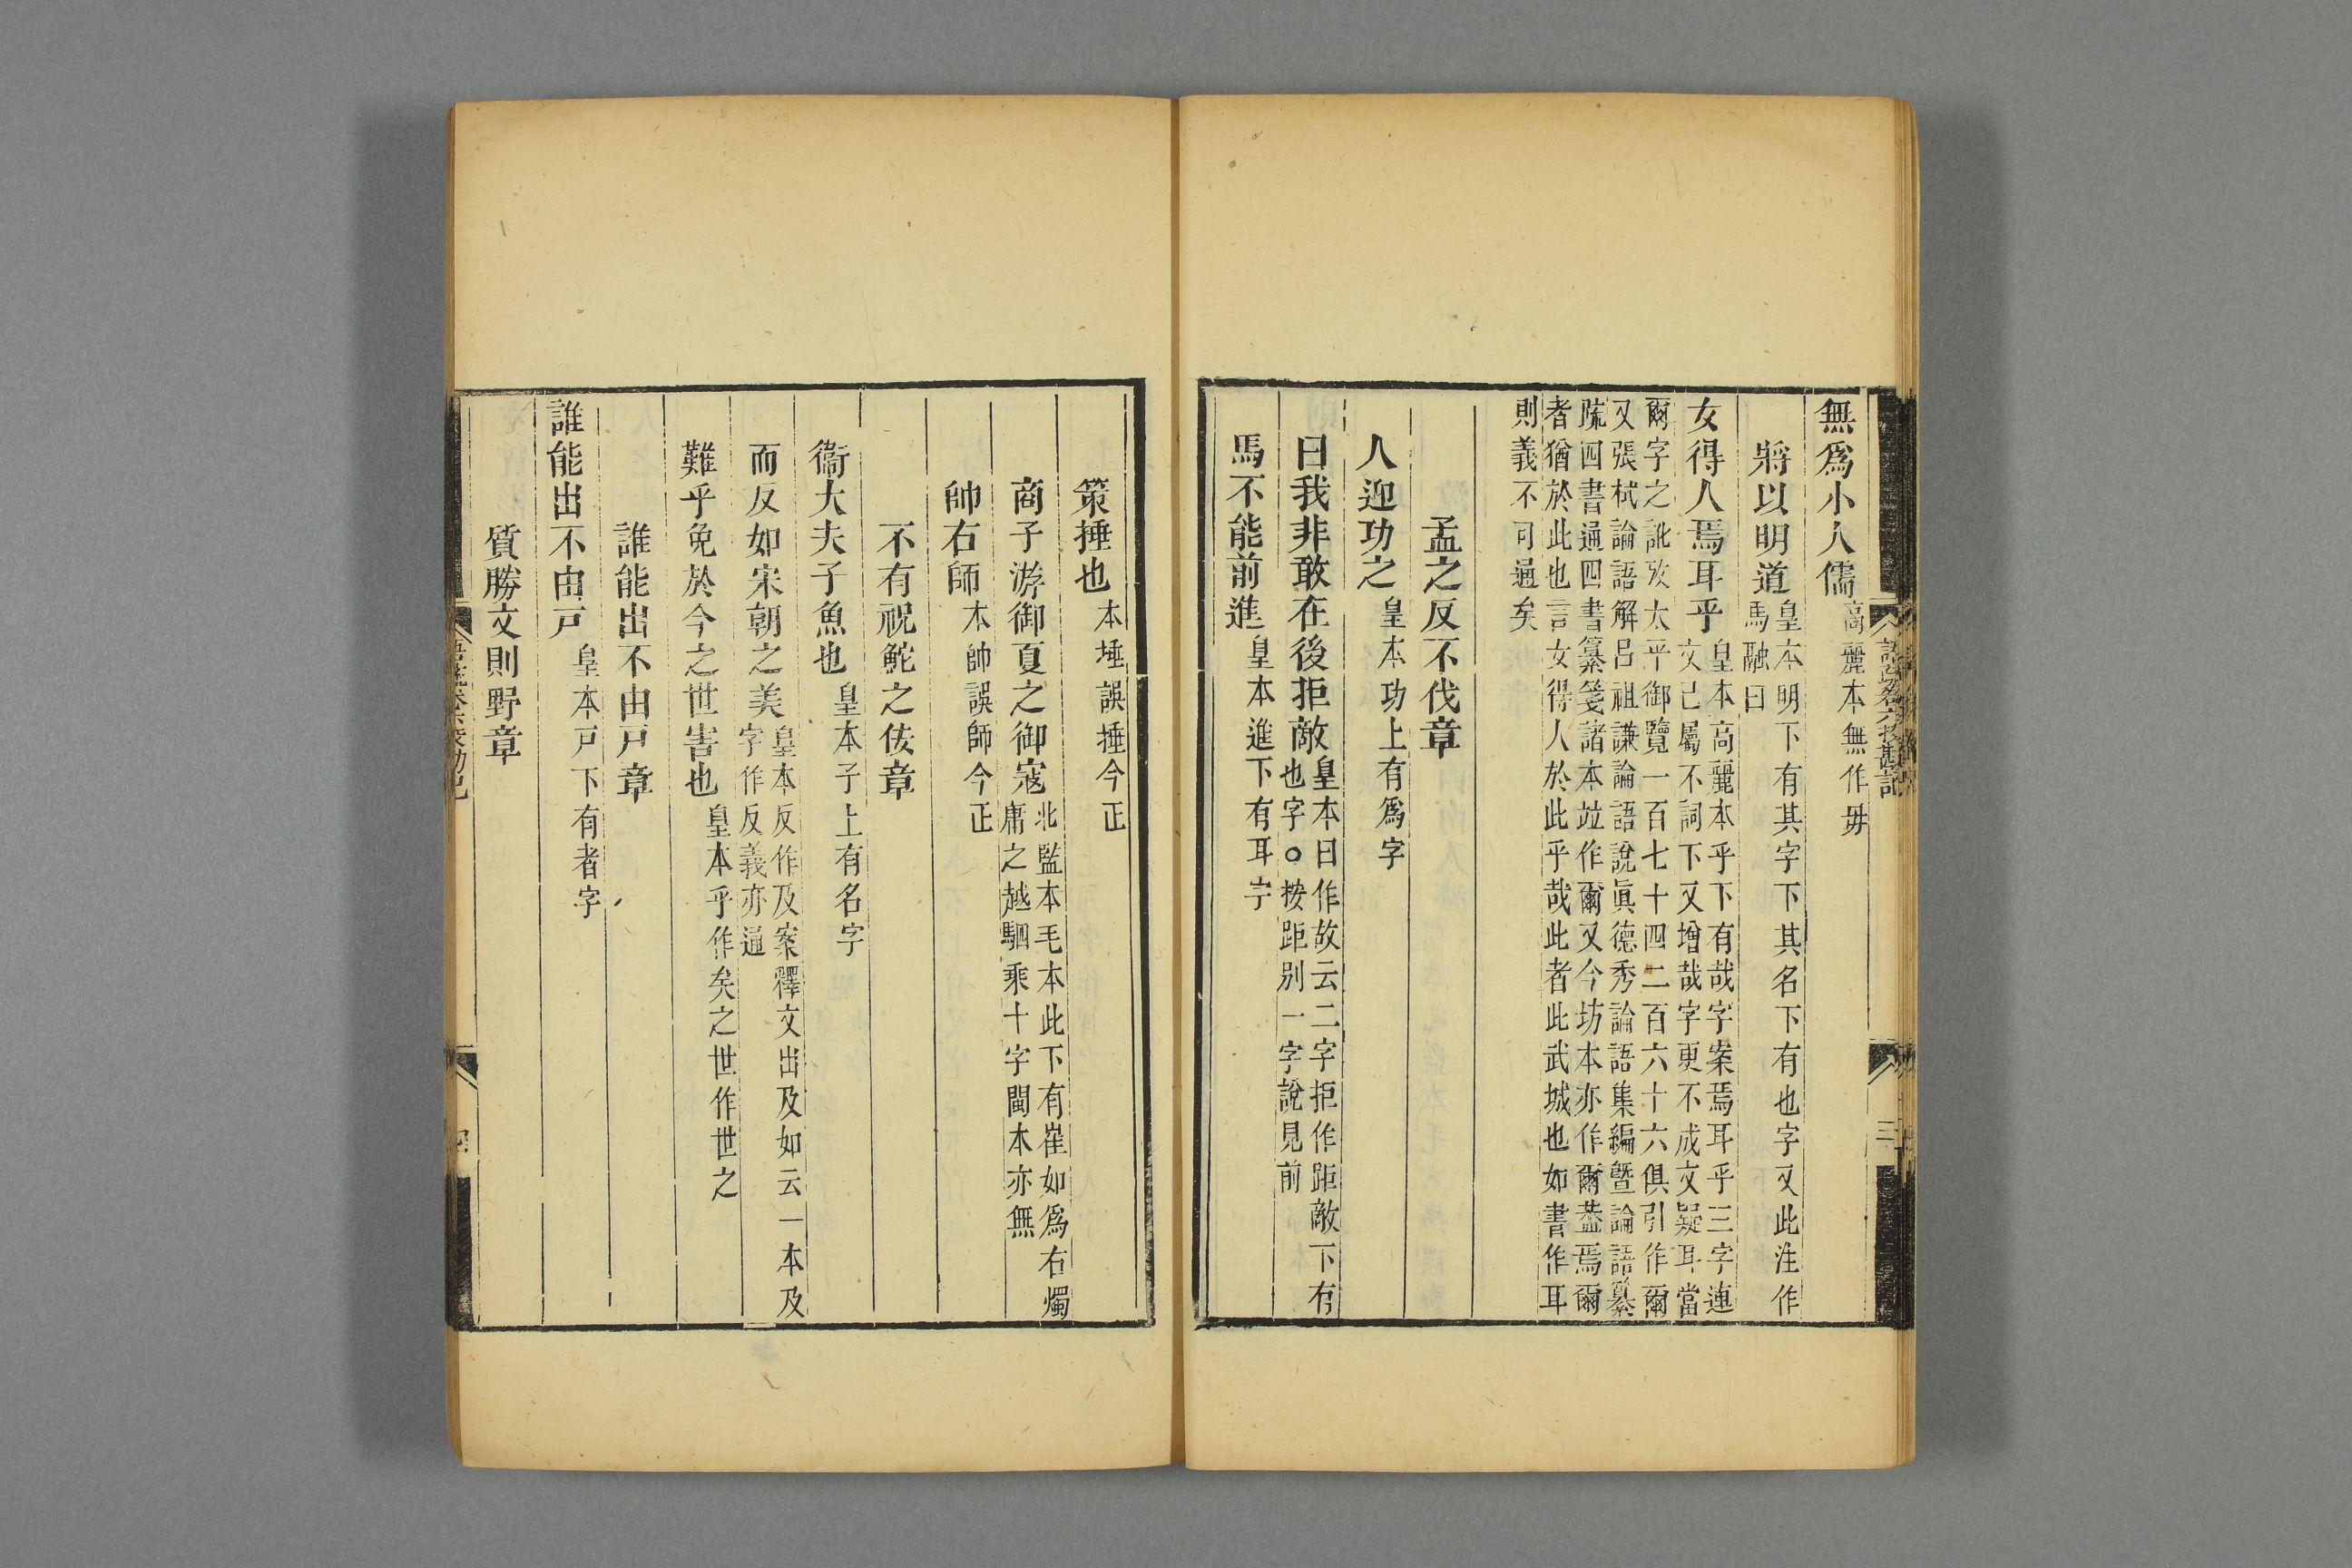 無爲小人儒高麗本無作毋
將以明道皇本明下有其字下其名下有也字又此注作
馬融曰
女得人焉耳乎皇本高麗本乎下有哉字案焉耳乎三字連
文已屬不詞下又增哉字更不成文疑耳當
爾字之訛攷太平御覽一百七十四二百六十六俱引作爾
又張栻論語解呂祖謙論語說眞德秀論語集編暨論語纂
疏四書通四書纂箋諸本竝作爾又今坊本亦作爾葢焉爾
者猶於此也言女得人於此乎哉此者此武城也如書作耳
則義不可通矣
孟之反不伐章
人迎功之皇本功上有爲字
曰我非敢在後拒敵皇本曰作故云二字拒作距敵下有
也字○按距別一字說見前
馬不能前進皇本進下有耳字
語疏卷六校勘記
三
策捶也本埵誤捶今正
商子游御夏之御寇北監本毛本此下有崔如爲右燭
庸之越駟乘十字閩本亦無
帥右師本帥誤師今正
不有祝鮀之佞章
衞大夫子魚也皇本子上有名字
而反如宋朝之美皇本反作及案釋文出及如云一本及
字作反義亦通
難乎免於今之世害也皇本乎作矣之世作世之
誰能出不由戸章
誰能出不由戸皇本戸下有者字
質勝文則野章